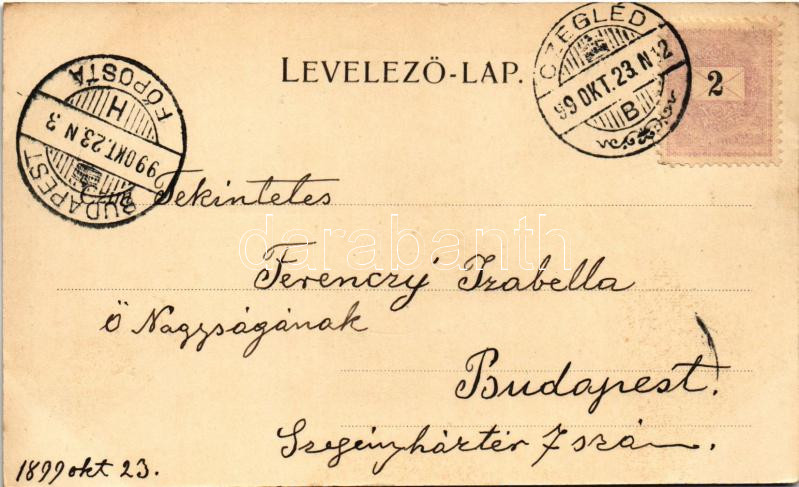 LEVELEZŐ-LAP.
CZEGLÉD
99 OKT. 23. N 12
B
2
FŐPOSTA
H
99 OKT. 23 N 3
BUDAPEST
Tekintetes
darabanth
Ferenczy Izabella
Ő Nagyságának
Budapest.
Szegényháztér 7 szám.
1899 okt 23.